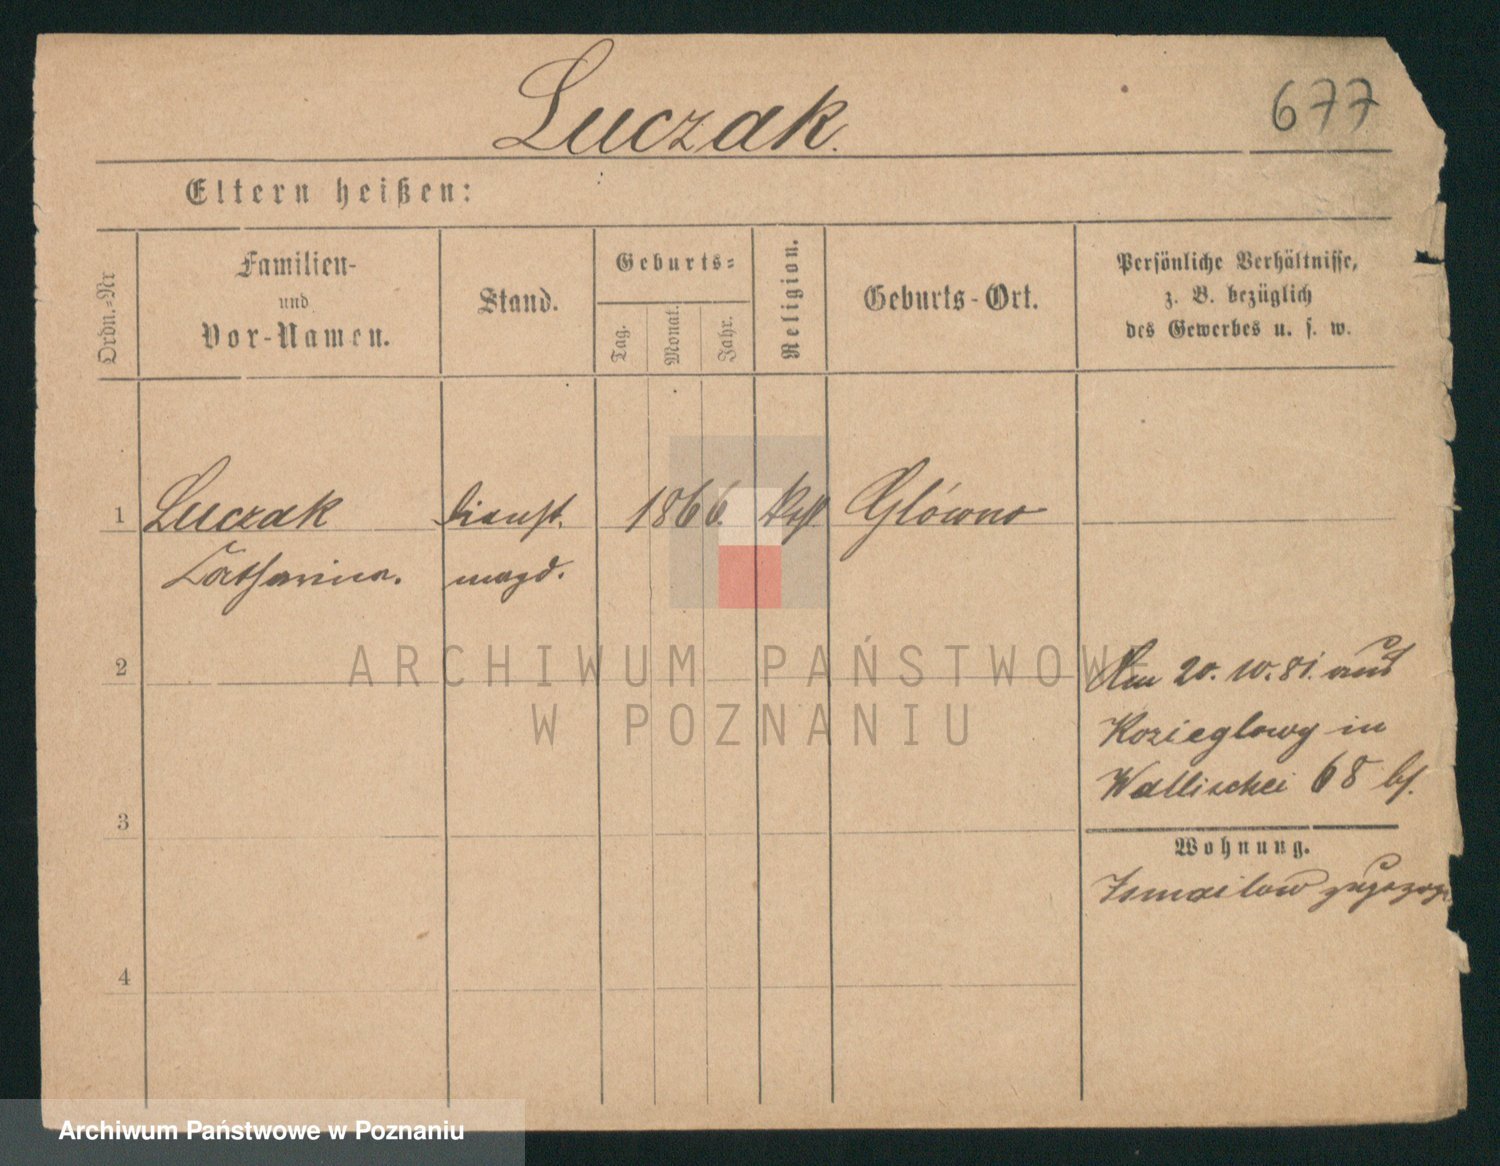 Luczak.
677
Eltern heißen:
Ordn.-Nr
Familien-
und
Vor-Namen.
Stand.
Geburts-
Tag.
Monat.
Jahr.
Religion.
Geburts-Ort.
Persönliche Verhältnisse,
z. B. bezüglich
des Gewerbes u. s. w.
1 Luczak Dienst. 1866. kth. Główno
Catharina. magd.
ARCHIWUM PAŃSTWOWE
W POZNANIU
2
Am 20. 10. 81. aus
Kozieglowy in
Wallischei 68 bj.
3
Wohnung.
Ismailow
4
Archiwum Państwowe w Poznaniu